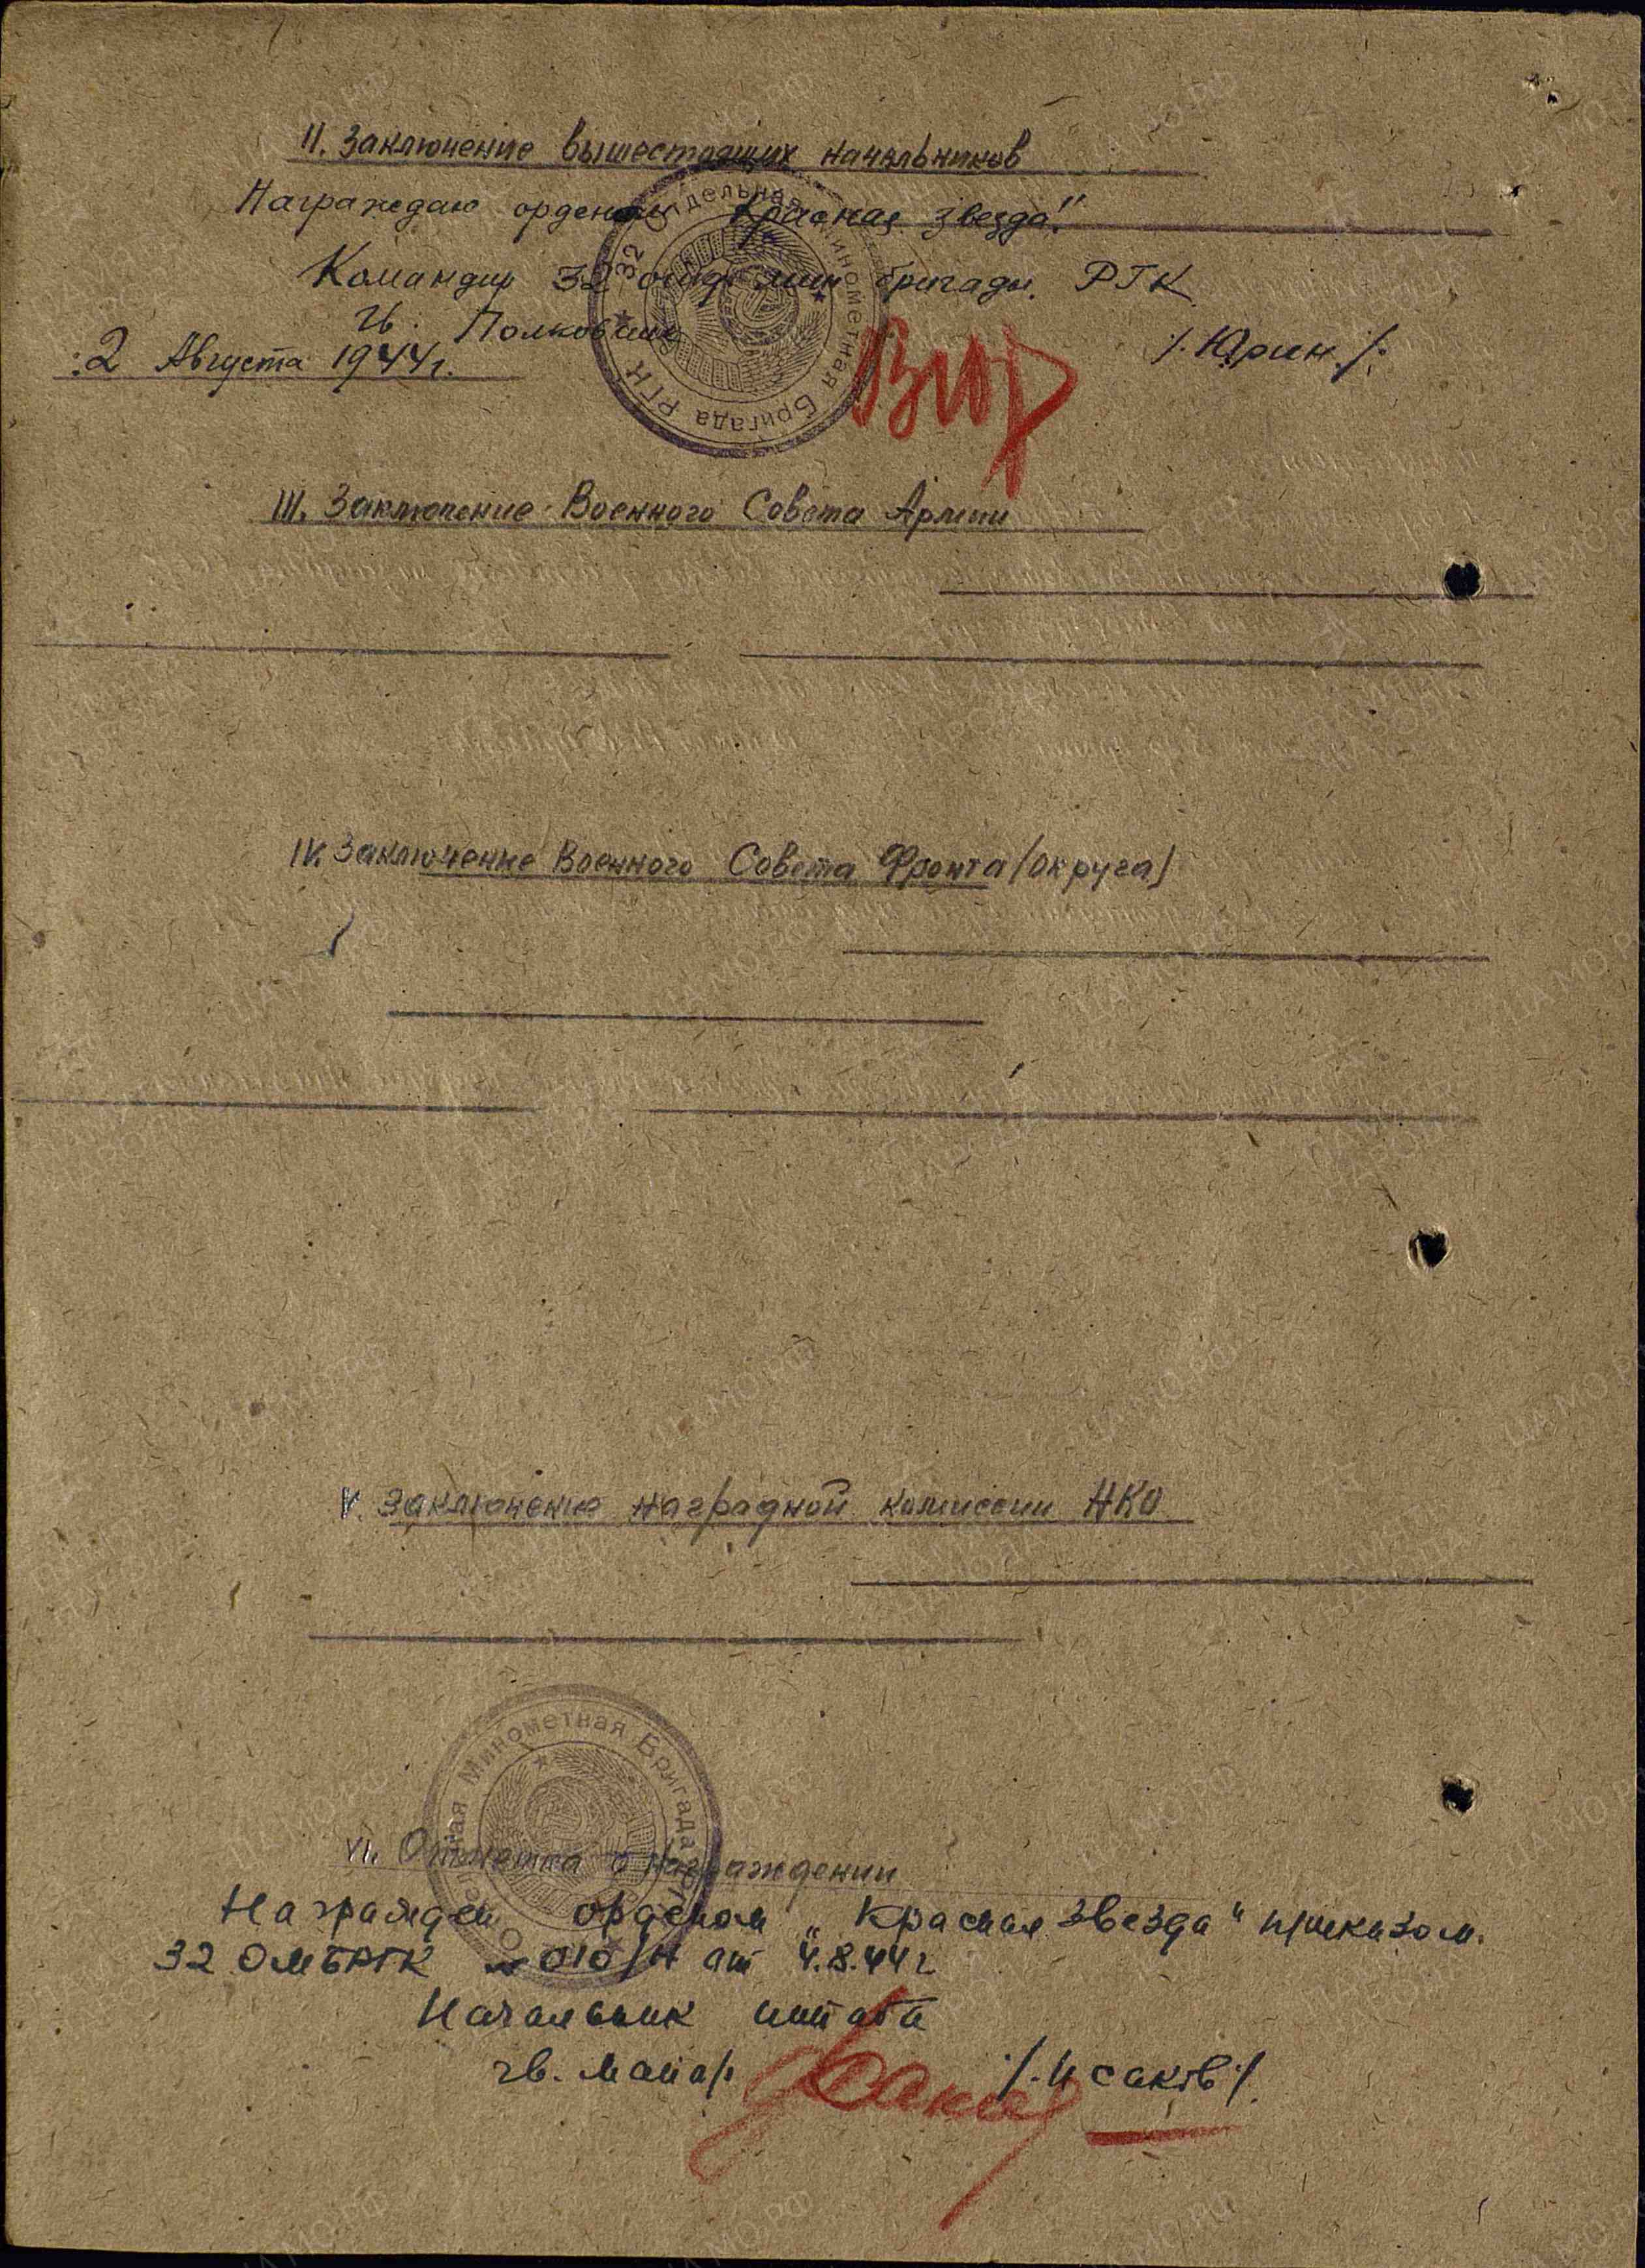 II. Заключение вышестоящих начальников
Награждаю орденом „Красная звезда"
Командир 32 отд. мин бригады РГК
Гв. Полковник /.Юрин./.
:2 Августа 1944 г.
32 Отдельная Минометная Бригада РГК
III. Заключение Военного Совета Армии
IV. Заключение Военного Совета Фронта (округа)
V. Заключение наградной комиссии НКО
Отдельная Минометная Бригада РГК
VI. Отметка о награждении
Награжден орденом „Красная звезда" приказом
32 ОМБРГК № 010/Н от 4.8.44 г
Начальник штаба
гв. майор /.Исаков/.
ЦА МО.РФ